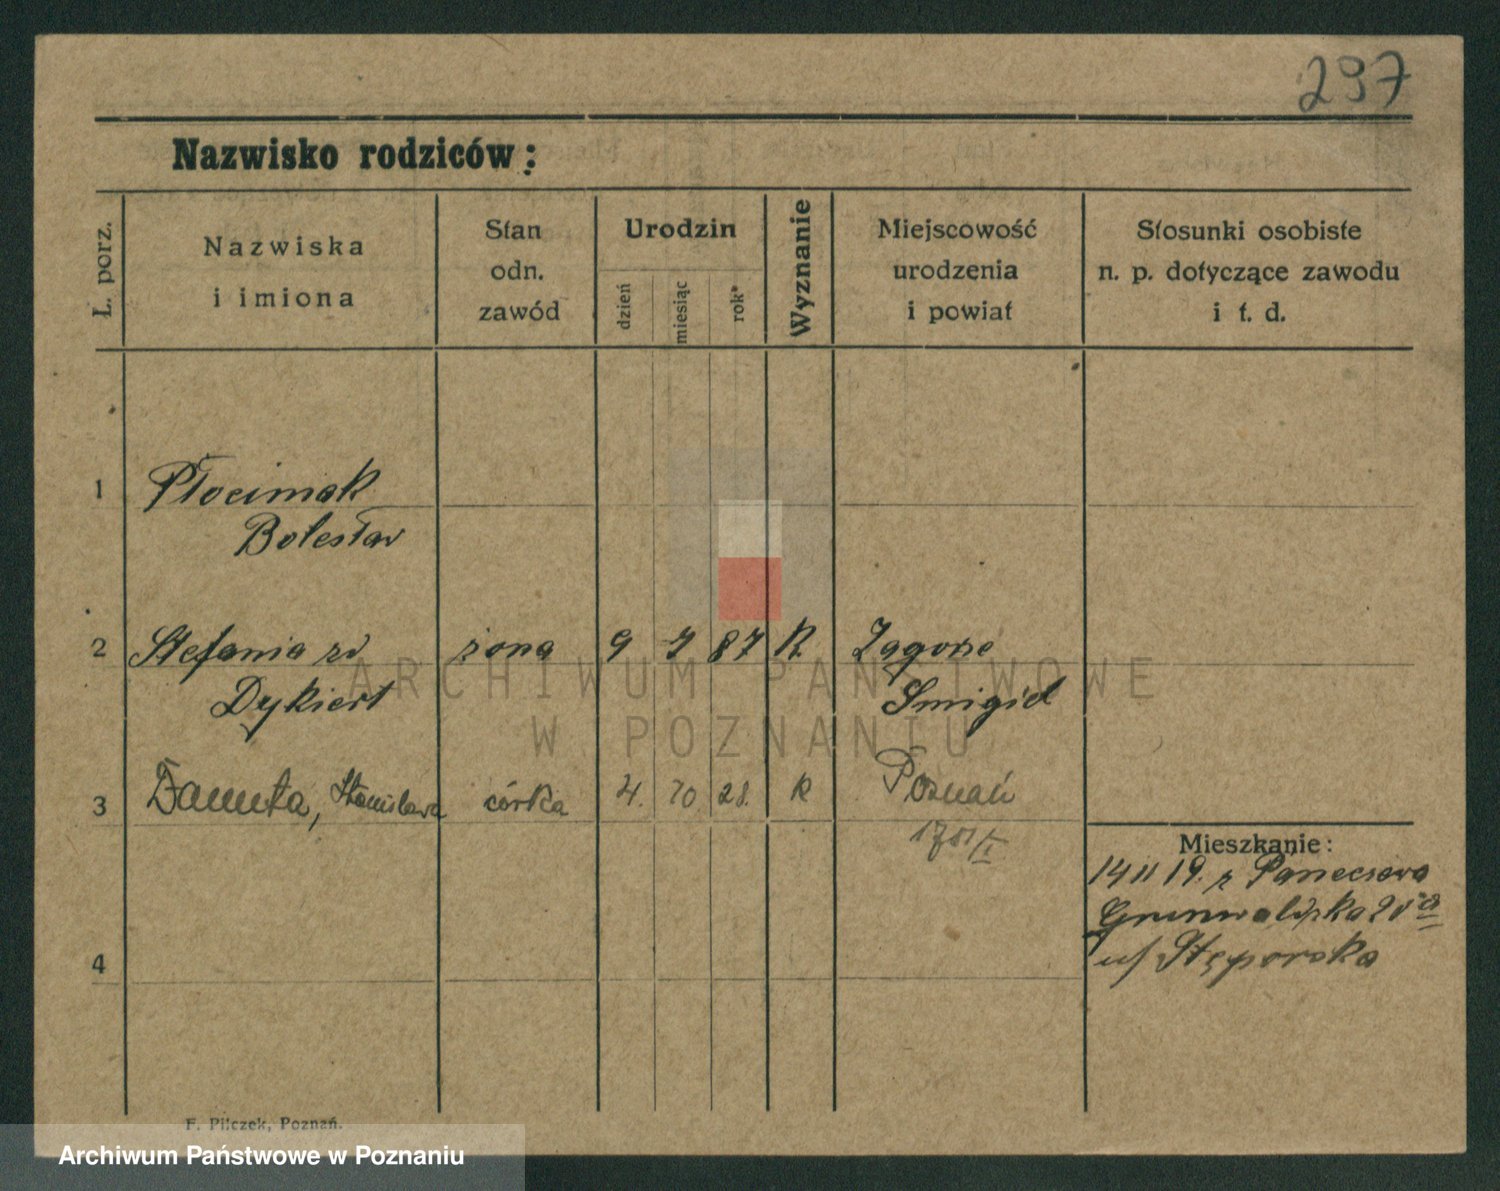 297
Nazwisko rodziców:
L. porz.
Nazwiska
i imiona
Stan
odn.
zawód
Urodzin
dzień
miesiąc
rok
Wyznanie
Miejscowość
urodzenia
i powiat
Stosunki osobiste
n. p. dotyczące zawodu
i t. d.
1 Płocimak
Bolesław
2 Stefania zd żona 9 7 87 R Zagorse
Dykiert Smigiel
3 Danuta, Stanisława córka 4. 10 28. R Poznań
Mieszkanie:
14 11 19. z
Grunwaldzka
u/ Stęporska
4
F. Pilczek, Poznań.
ARCHIWUM PAŃSTWOWE
W POZNANIU
Archiwum Państwowe w Poznaniu